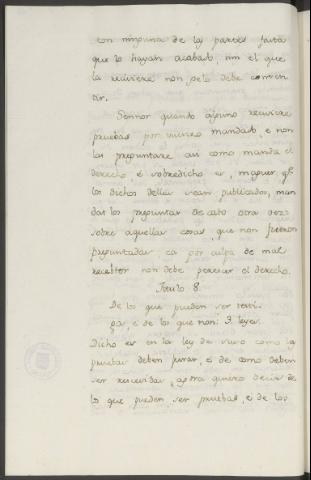 con ninguna de las partes fasta
que lo hayan acabado, nin el que
la reciviere non selo debe consen-
tir.
Sennor quando alguno reciviere
pruebas por vuestro mandado, e non
las preguntare asi como manda el
derecho, e sobredicho es, maguer q.e
los dichos dellas sean publicados, man-
dad los preguntar de cabo otra vez
sobre aquellas cosas que non fueron
preguntadas, ca por culpa de mal
recebtor non debe perescer el derecho.
Titulo 8.
De los que pueden ser testi-
gos, e de los que non: 3. leyes.
Dicho es en la ley de suso como las
pruebas deben jurar, e de como deben
ser rescividas, agora quiero decir de
los que pueden ser pruebas, e de los